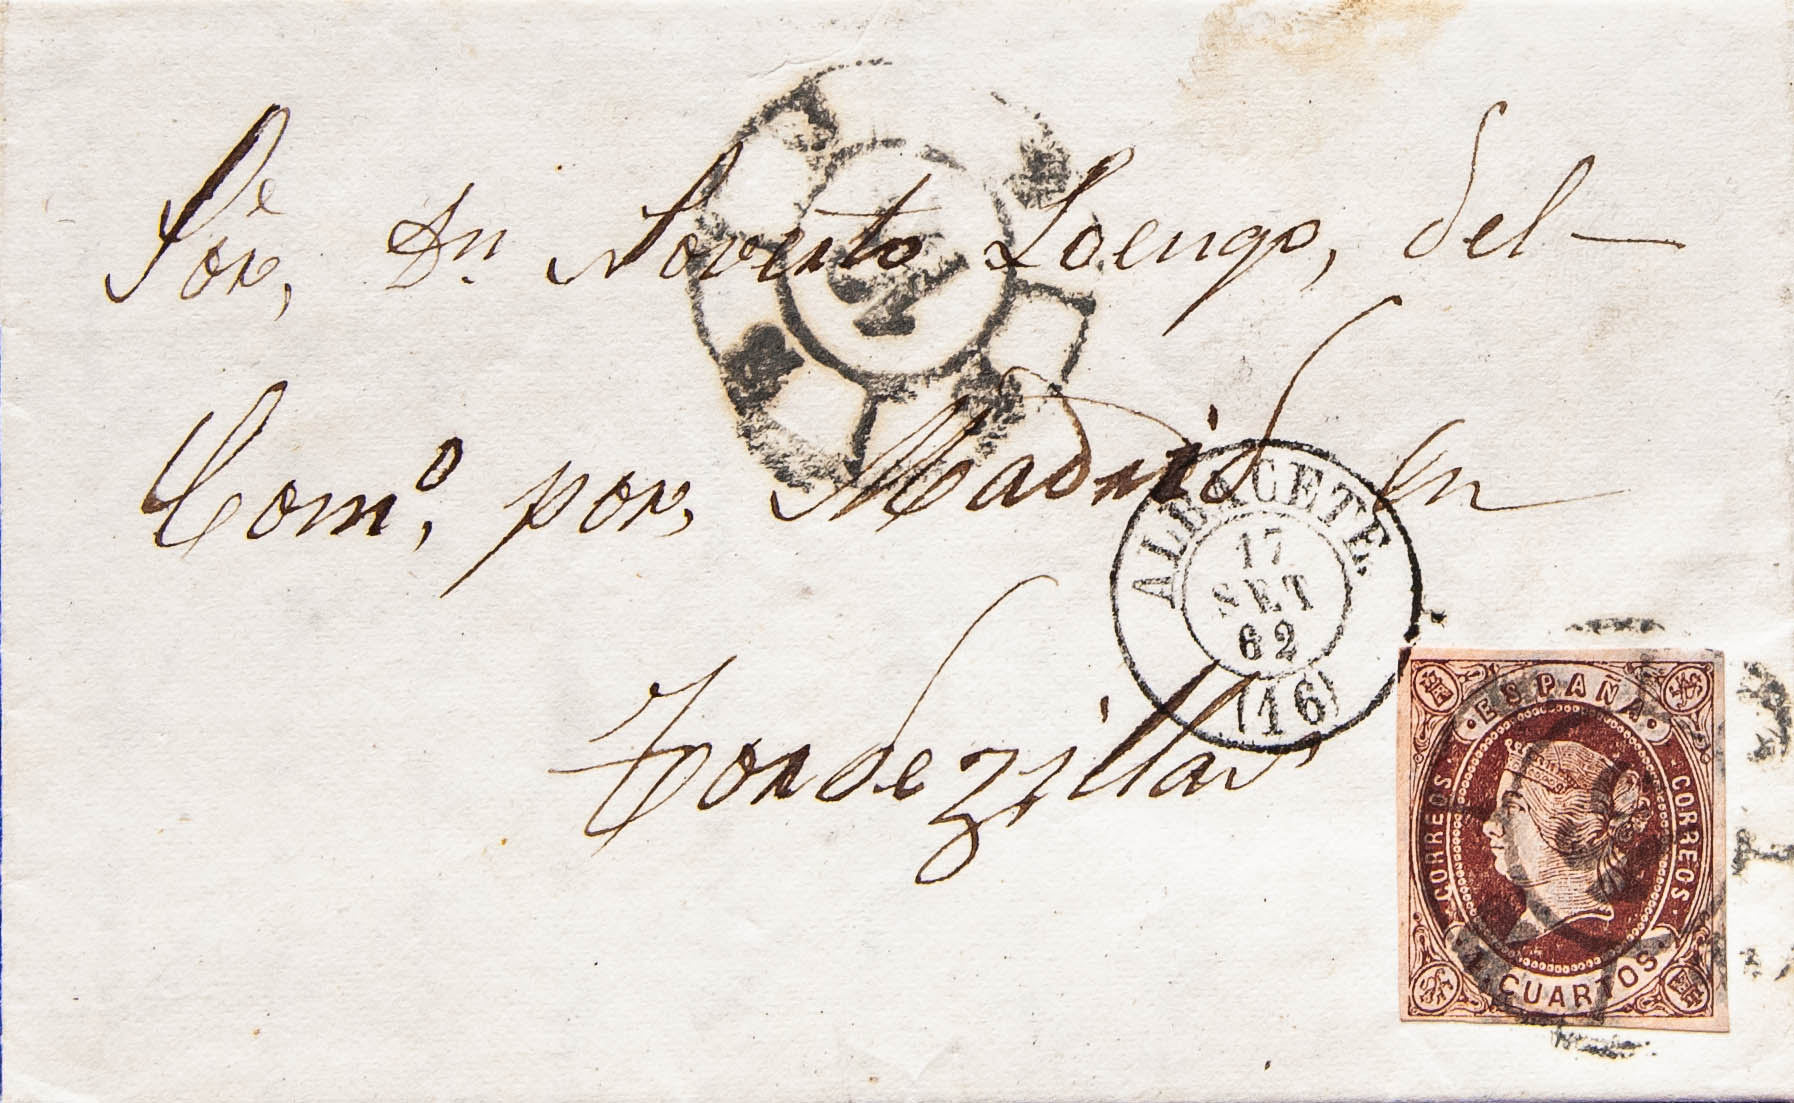 Sor, Dn. Noverto Loengo, del
Como, por, Madrid En
Tordezillas
ALBACETE
17
SET
62
(16)
ESPAÑA
CORREOS
CORREOS
CUARTOS